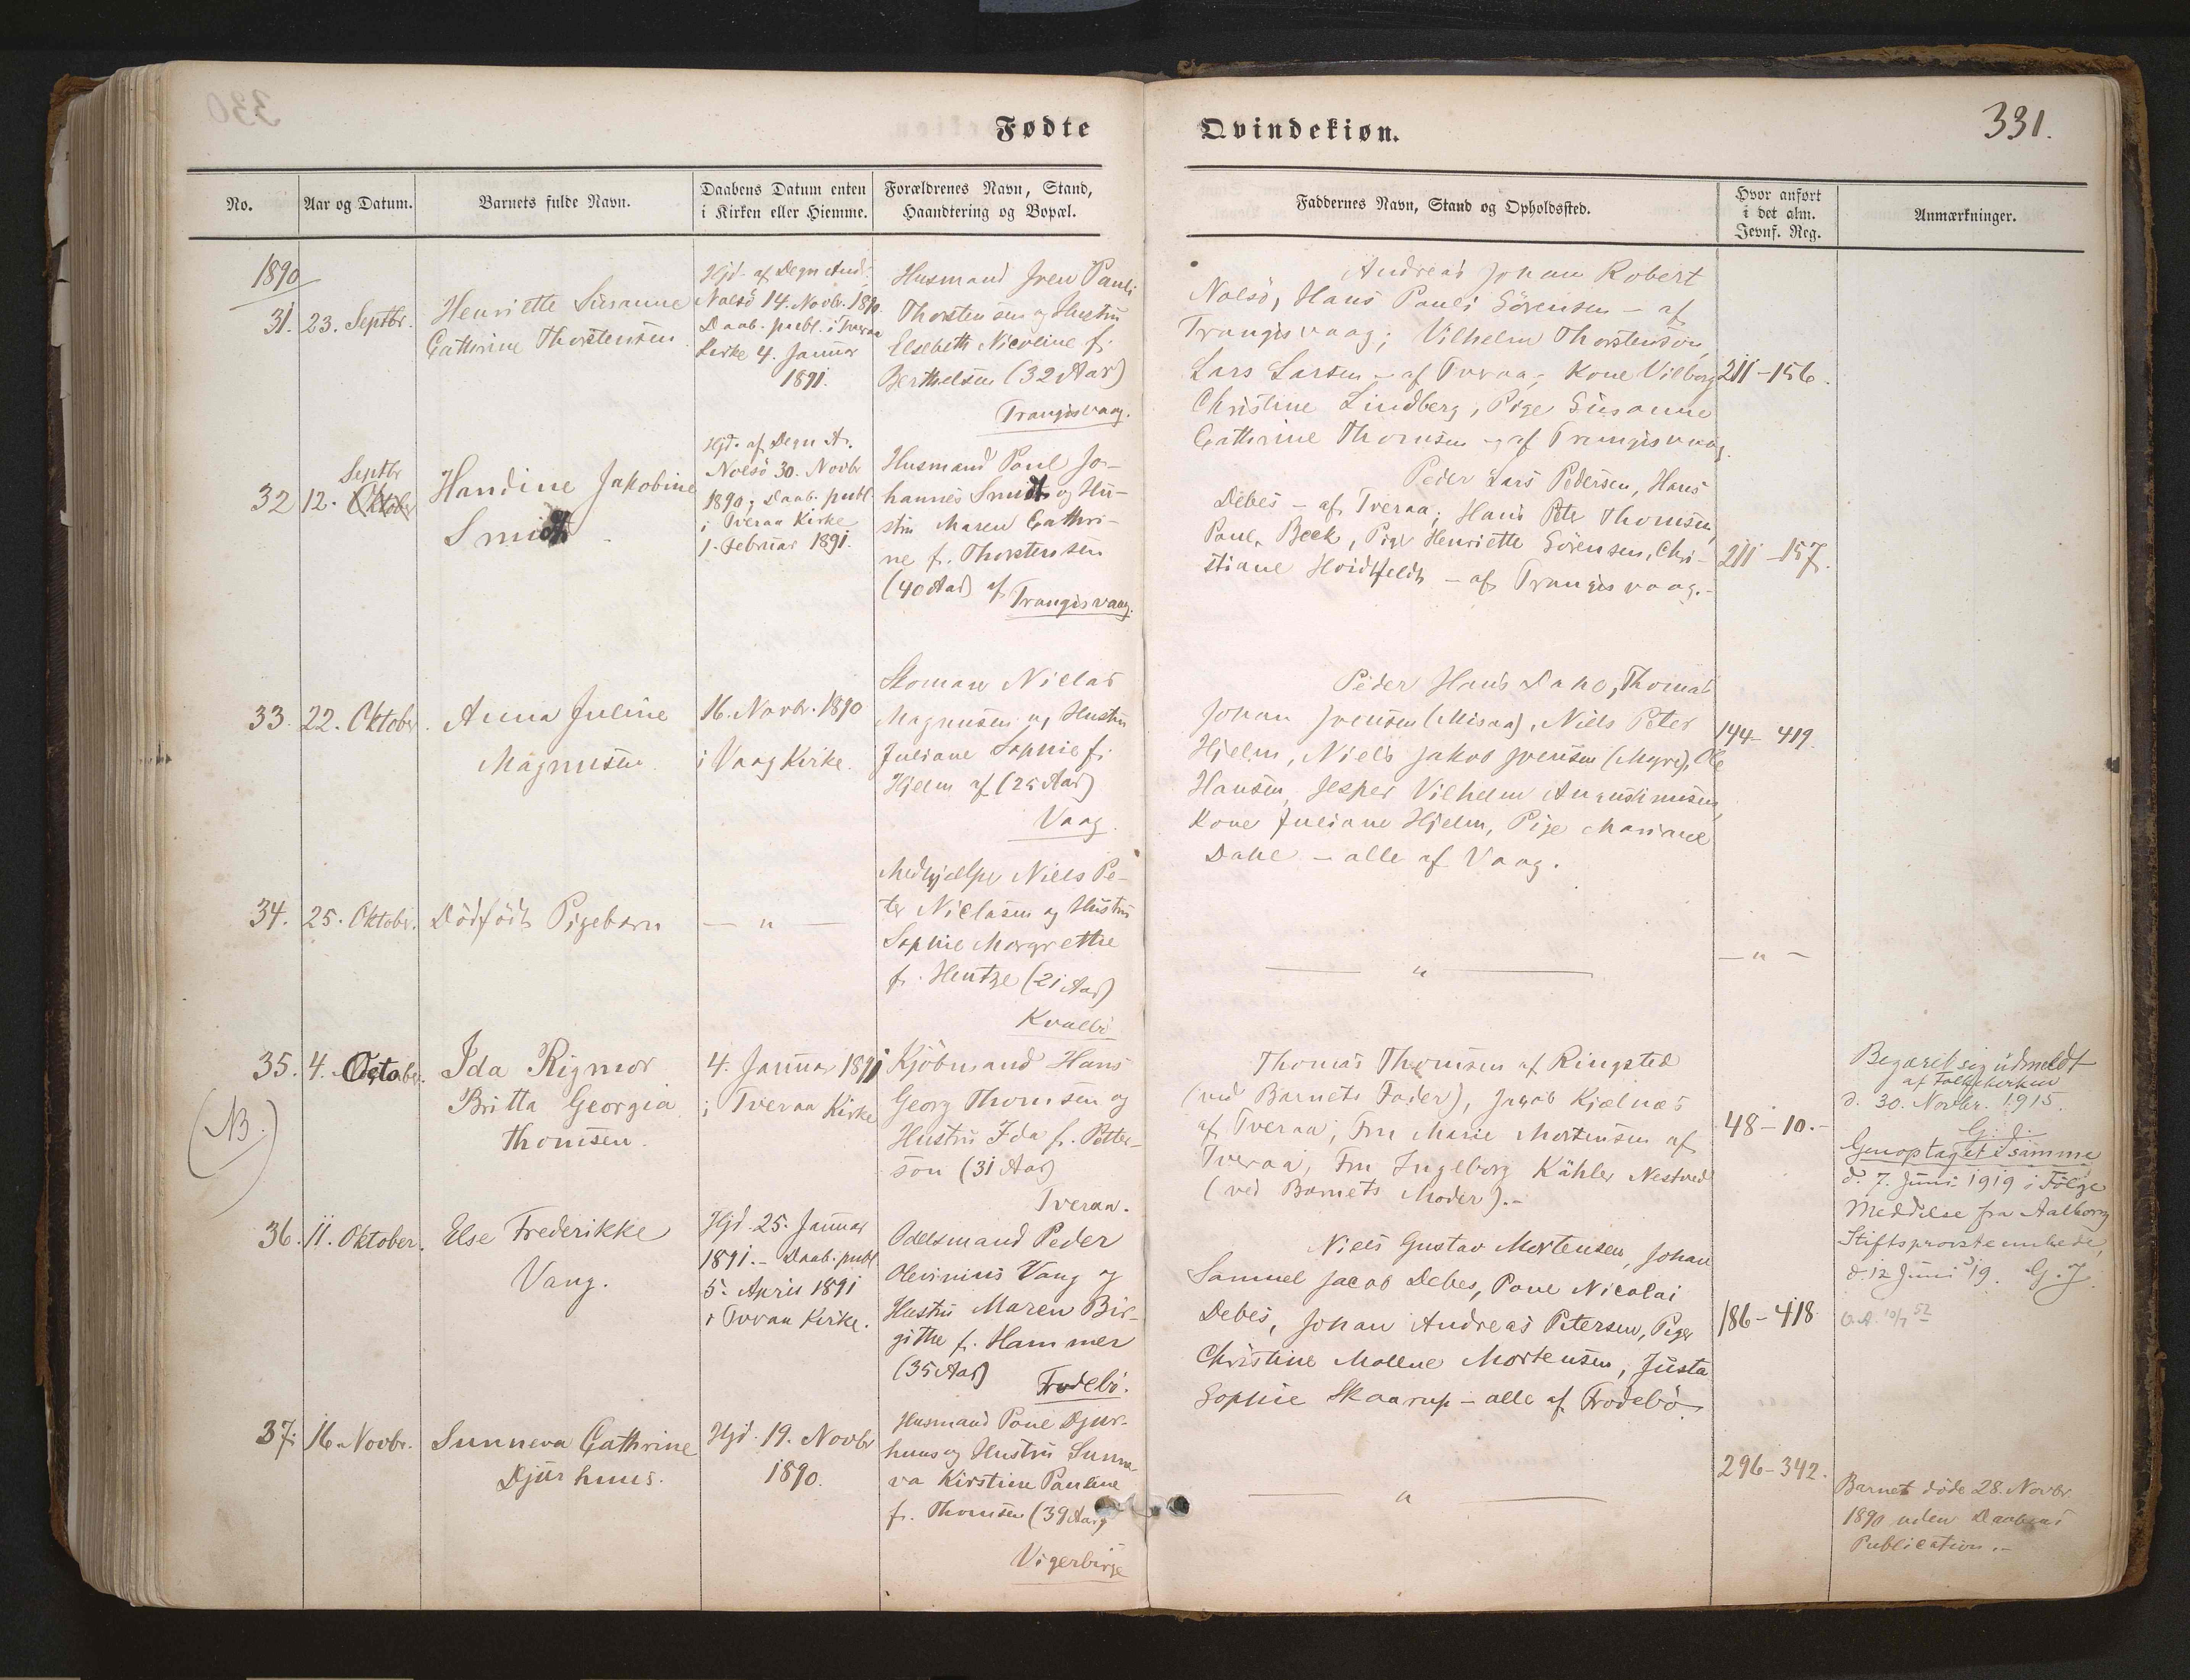 Fødte
Qvindekiøn.
331.
No.
Aar og Datum.
Barnets fulde Navn.
Daabens Datum enten
i Kirken eller Hiemme.
Forældrenes Navn, Stand,
Haandtering og Bopæl.
Faddernes Navn, Stand og Opholdssted.
Hvor anført
i det alm.
Jevnf. Reg.
Anmærkninger.
1890
31.
23. Septbr.
Henriette Susanne
Cathrine Thorstensen
Hjd. af Degn And.
Nolsö 14. Novbr. 1890.
Daab. publ. i Tveraa
Kirke 4. Januar
1891.
Husmand Sven Pauli
Thorstensen og Hustru
Elsebeth Nicoline f.
Berthelsen (32 Aar)
Trangisvaag.
Andreas Johan Robert
Nolsö, Hans Pauli Sörensen – af
Trangisvaag; Vilhelm Thorstenson,
Lars Larsen – af Tveraa; Kone Vilborg
Christine Lindberg, Pige Susanne
Cathrine Thomsen – af Trangisvaag.
211–156.
32
Septbr
12. Oktober
Handine Jakobine
Smidt
Hjd. af Degn A.
Nolsö 30. Novbr
1890; Daab. publ.
i Tveraa Kirke
1. Februar 1891.
Husmand Poul Jo-
hannes Smidt og Hu-
stru Maren Cathri-
ne f. Thorstensen
(40 Aar) af Trangisvaag.
Peder Lars Pedersen, Hans
Debes – af Tveraa; Hans Peter Thomsen,
Poul Beck, Pige Henriette Sörensen, Chri-
stiane Hvidtfeldt – af Trangisvaag.–
211–157.
33.
22. Oktober.
Anna Juline
Magnusen
16. Novbr. 1890
i Vaag Kirke.
Skomager Niclas
Magnusen og Hustru
Juliane Sophie f.
Hjelm af (25 Aar)
Vaag.
Peder Hans Dahl, Thomas
Johan Joensen (Misaa), Niels Peter
Hjelm, Niels Jakob Joensen (Myre), Ole
Hansen, Jesper Vilhelm Augustinusen,
Kone Juliane Hjelm, Pige Mariane
Dahl – alle af Vaag.
144–419.
34.
25. Oktober.
Dödfödt Pigebarn
— " —
Medhjælper Niels Pe-
ter Niclasen og Hustru
Sophie Margrethe
f. Hentze (21 Aar)
Kvalbö
— " —
— " —
35.
4. October.
Ida Rigmor
Britta Georgia
Thomsen.
4. Januar 1891
i Tveraa Kirke
Kjöbmand Hans
Georg Thomsen og
Hustru Ida f. Petter-
son (31 Aar)
Tveraa.
Thomas Thomsen af Ringsted
(ved Barnets Fader), Jacob Kjælnæs
af Tveraa, Fru Marie Mortensen af
Tveraa, Fru Ingeborg Kähler Nestved
(ved Barnets Moder).–
48–10.–
Begæret sig udmeldt
af Folkekirken
d. 30. Novbr. 1915.
G. J.
Genoptaget i samme
d. 7. Juni 1919 i Fölge
Meddelse fra Aalborg
Stiftsprovsteembede,
d. 12 Juni 19. G. J.
(NB.)
36.
11. Oktober.
Else Frederikke
Vang.
Hjd. 25. Januar
1891.– Daab. publ.
5. April 1891
i Tveraa Kirke.
Odelsmand Peder
Olevinius Vang og
Hustru Maren Bir-
githe f. Hammer
(35 Aar)
Frodebö.
Niels Gustav Mortensen, Johan
Samuel Jacob Debes, Poul Nicolai
Debes, Johan Andreas Petersen, Piger
Christine Malene Mortensen, Justa
Sophie Skaarup – alle af Frodebö.
186–418
37.
16. Novbr.
Sunneva Cathrine
Djurhuus.
Hjd. 19. Novbr
1890.
Husmand Poul Djur-
huus og Hustru Sunne-
va Kirstine Pauline
f. Thomsen (39 Aar)
Vigerbirge
— " —
296–342.
Barnet döde 28. Novbr.
1890 uden Daabens
Publication.–